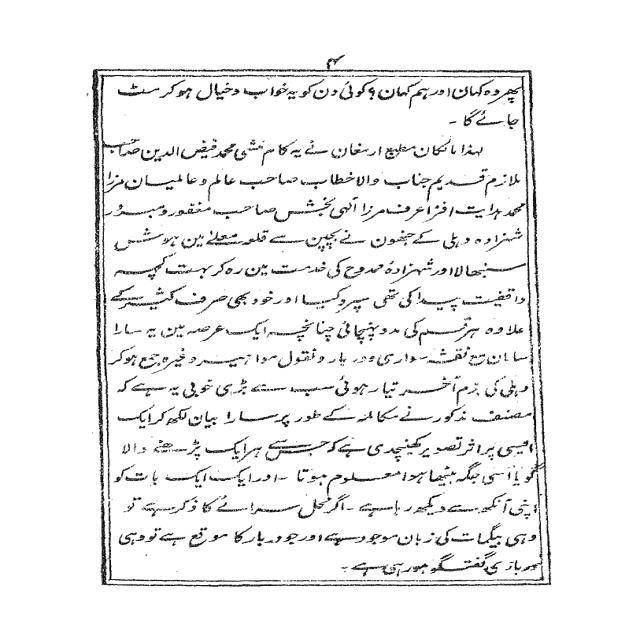 ۴
پھر وہ کہان اور ہم کہان ؟ کوئی دن کو یہ خواب و خیال ہو کر مٹ
جائے گا ۔
لہذا مالکان مطبع ارمغان نے یہ کام منشی محمد فیض الدین صاحب
ملازم قدیم جناب والا خطاب صاحب عالم و عالمیان مرزا
محمد ہدایت افزا عرف مرزا الٰہی بخش صاحب مغفور و مبرور
شہزادہ دہلی کے جنھون نے بچپن سے قلعہ معلّے مین ہوش
سنبھالا اور شہزادہ ممدوح کی خدمت مین رہ کر بہت کچھ
واقفیت پیدا کی تھی سپرد کیا اور خود بھی صرف کثیر کے
علاوہ ہر قسم کی مدد پہنچائی چنانچہ ایک عرصہ مین یہ سارا
سامان مع نقشہ سواری و دربار و نقول مواہیر وغیرہ جمع ہو کر
دہلی کی بزم آخر تیار ہوئی سب سے بڑی خوبی یہ ہے کہ
مصنف مذکور نے مکالمہ کے طور پر سارا بیان لکھ کر ایک
ایسی پر اثر تصویر کھینچدی ہے کہ جس سے ہر ایک پڑھنے والا
گویا اسی جگہ بیٹھا ہوا معلوم ہوتا ۔ اور ایک ایک بات کو
اپنی آنکھ سے دیکھ رہا ہے ۔ اگر محل سرائے کا ذکر ہے تو
وہی بیگمات کی زبان موجود ہے اور جو دربار کا موقع ہے تو وہی
گفتگو ہو رہی ہے ۔